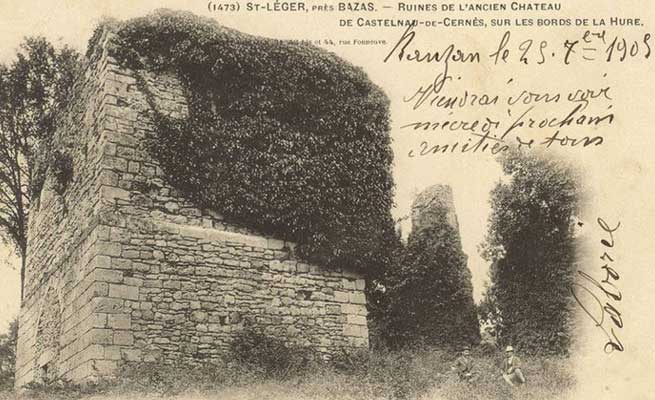 (1473) ST-LÉGER, PRÈS BAZAS. – RUINES DE L'ANCIEN CHATEAU
DE CASTELNAU-DE-CERNÈS, SUR LES BORDS DE LA HURE.
et 44, rue Fonneuve.
le 25. 7bre 1905
Viendrai vous voir
mecredi prochain
amitiés de tous
Laborie